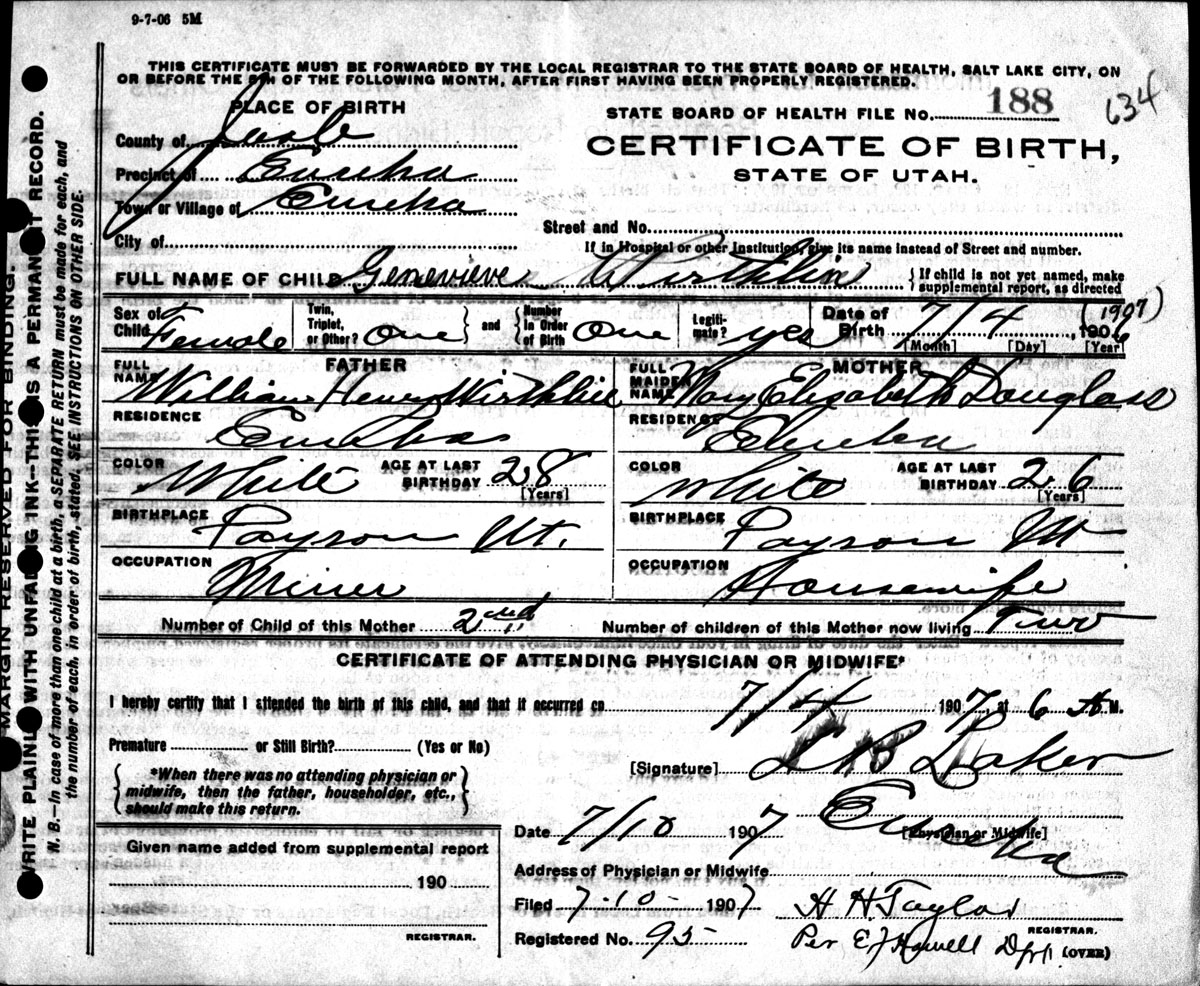 9-7-06 5M
THIS CERTIFICATE MUST BE FORWARDED BY THE LOCAL REGISTRAR TO THE STATE BOARD OF HEALTH, SALT LAKE CITY, ON
OR BEFORE THE 5TH OF THE FOLLOWING MONTH, AFTER FIRST HAVING BEEN PROPERLY REGISTERED.
PLACE OF BIRTH
STATE BOARD OF HEALTH FILE No. 188 634
County of Juab
CERTIFICATE OF BIRTH,
Precinct of Eureka
STATE OF UTAH.
Town or Village of Eureka
Street and No.
City of
If in Hospital or other Institution, give its name instead of Street and number.
FULL NAME OF CHILD Genevieve Wirthlin { If child is not yet named, make
supplemental report, as directed
Sex of Child Female Twin, Triplet, or Other? One and Number In Order of Birth One Legiti-mate? yes Date of Birth 7/4, 1906 (1907)
[Month] [Day] [Year]
FATHER MOTHER
FULL NAME William Henry Wirthlin FULL MAIDEN NAME Mary Elizabeth Douglass
RESIDENCE Eureka RESIDENCE Eureka
COLOR White AGE AT LAST BIRTHDAY 28 [Years] COLOR White AGE AT LAST BIRTHDAY 26 [Years]
BIRTHPLACE Payson Ut. BIRTHPLACE Payson Ut
OCCUPATION Miner OCCUPATION Housewife
Number of Child of this Mother 2nd Number of children of this Mother now living Two
CERTIFICATE OF ATTENDING PHYSICIAN OR MIDWIFE*
I hereby certify that I attended the birth of this child, and that it occurred on 7/4 1907, at 6 A M.
Premature or Still Birth? (Yes or No)
[Signature] Laker
{ *When there was no attending physician or
midwife, then the father, householder, etc.,
should make this return. }
[Physician or Midwife]
Date 7/10 1907 Eureka
Address of Physician or Midwife
Given name added from supplemental report
190
Filed 7-10- 1907 H H Taylor
REGISTRAR.
Registered No. 95 Per E J Howell Dpt
REGISTRAR.
(OVER)
MARGIN RESERVED FOR BINDING.
WRITE PLAINLY WITH UNFADING INK—THIS IS A PERMANENT RECORD.
N. B.—In case of more than one child at a birth, a SEPARATE RETURN must be made for each, and
the number of each, in order of birth, stated. SEE INSTRUCTIONS ON OTHER SIDE.